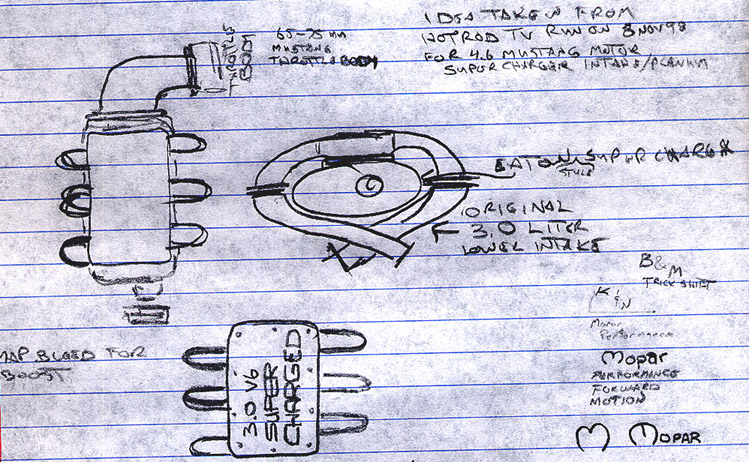 IDEA TAKEN FROM
HOTROD TV RUN ON 8 NOV 98
FOR 4.6 MUSTANG MOTOR
SUPOR CHARGER INTAKE/PLANUM
65-75 MM
MUSTANG
THROTTLE BODY
THROTTLE
BODY
EATON SUPER CHARGER
STYLE
ORIGINAL
3.0 LITER
LOWER INTAKE
B&M
TRICK SHIFT
K&N
Motor
Performance
MAP BLEED FOR
BOOST
3.0 V6
SUPER
CHARGED
Mopar
PERFORMANCE
FORWARD
MOTION
M MOPAR